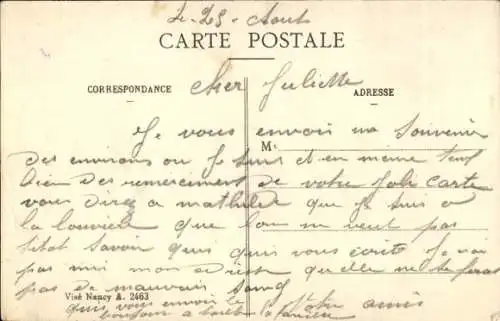 Le 25 Aout
CARTE POSTALE
Cher Juliette
CORRESPONDANCE
ADRESSE
Je vous envoi un Souvenir
M
des environs ou Je suis et en meme temp
bien des remerciment de votre Joli carte
vous direz a mathilde que Je suis a
la louviere que lon ne veut pas
sitot savoir quis quis vous écrite Je nai
pas mis mon adresse quelle ne se feras
pas de mauvais sang
Visé Nancy A. 2463
quis vous envoie le
bonjour a toute la
Votre amis